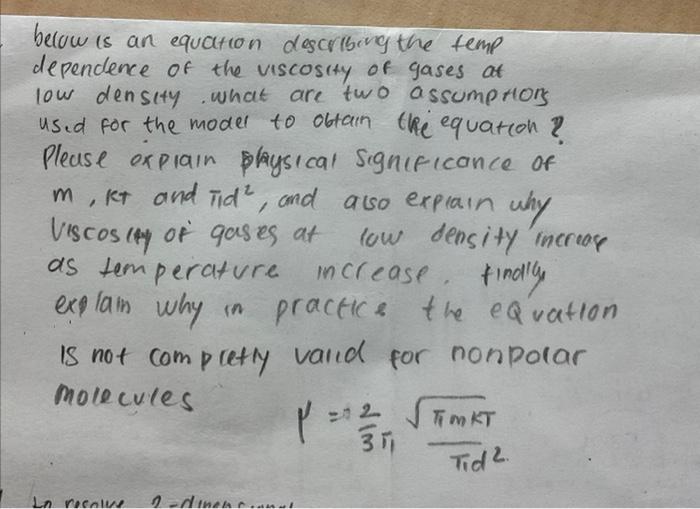 below is an equation describing the temp
dependence of the viscosity of gases at
low density . what are two assumptions
used for the model to obtain the equation ?
Please explain physical significance of
m , KT and πd², and also explain why
Viscosity of gases at low density increase
as temperature increase . finally
explain why in practice the eqvation
is not completly valid for nonpolar
molecules
μ = 2/3π √πmKT/πd²
to resolve 2-dimensional